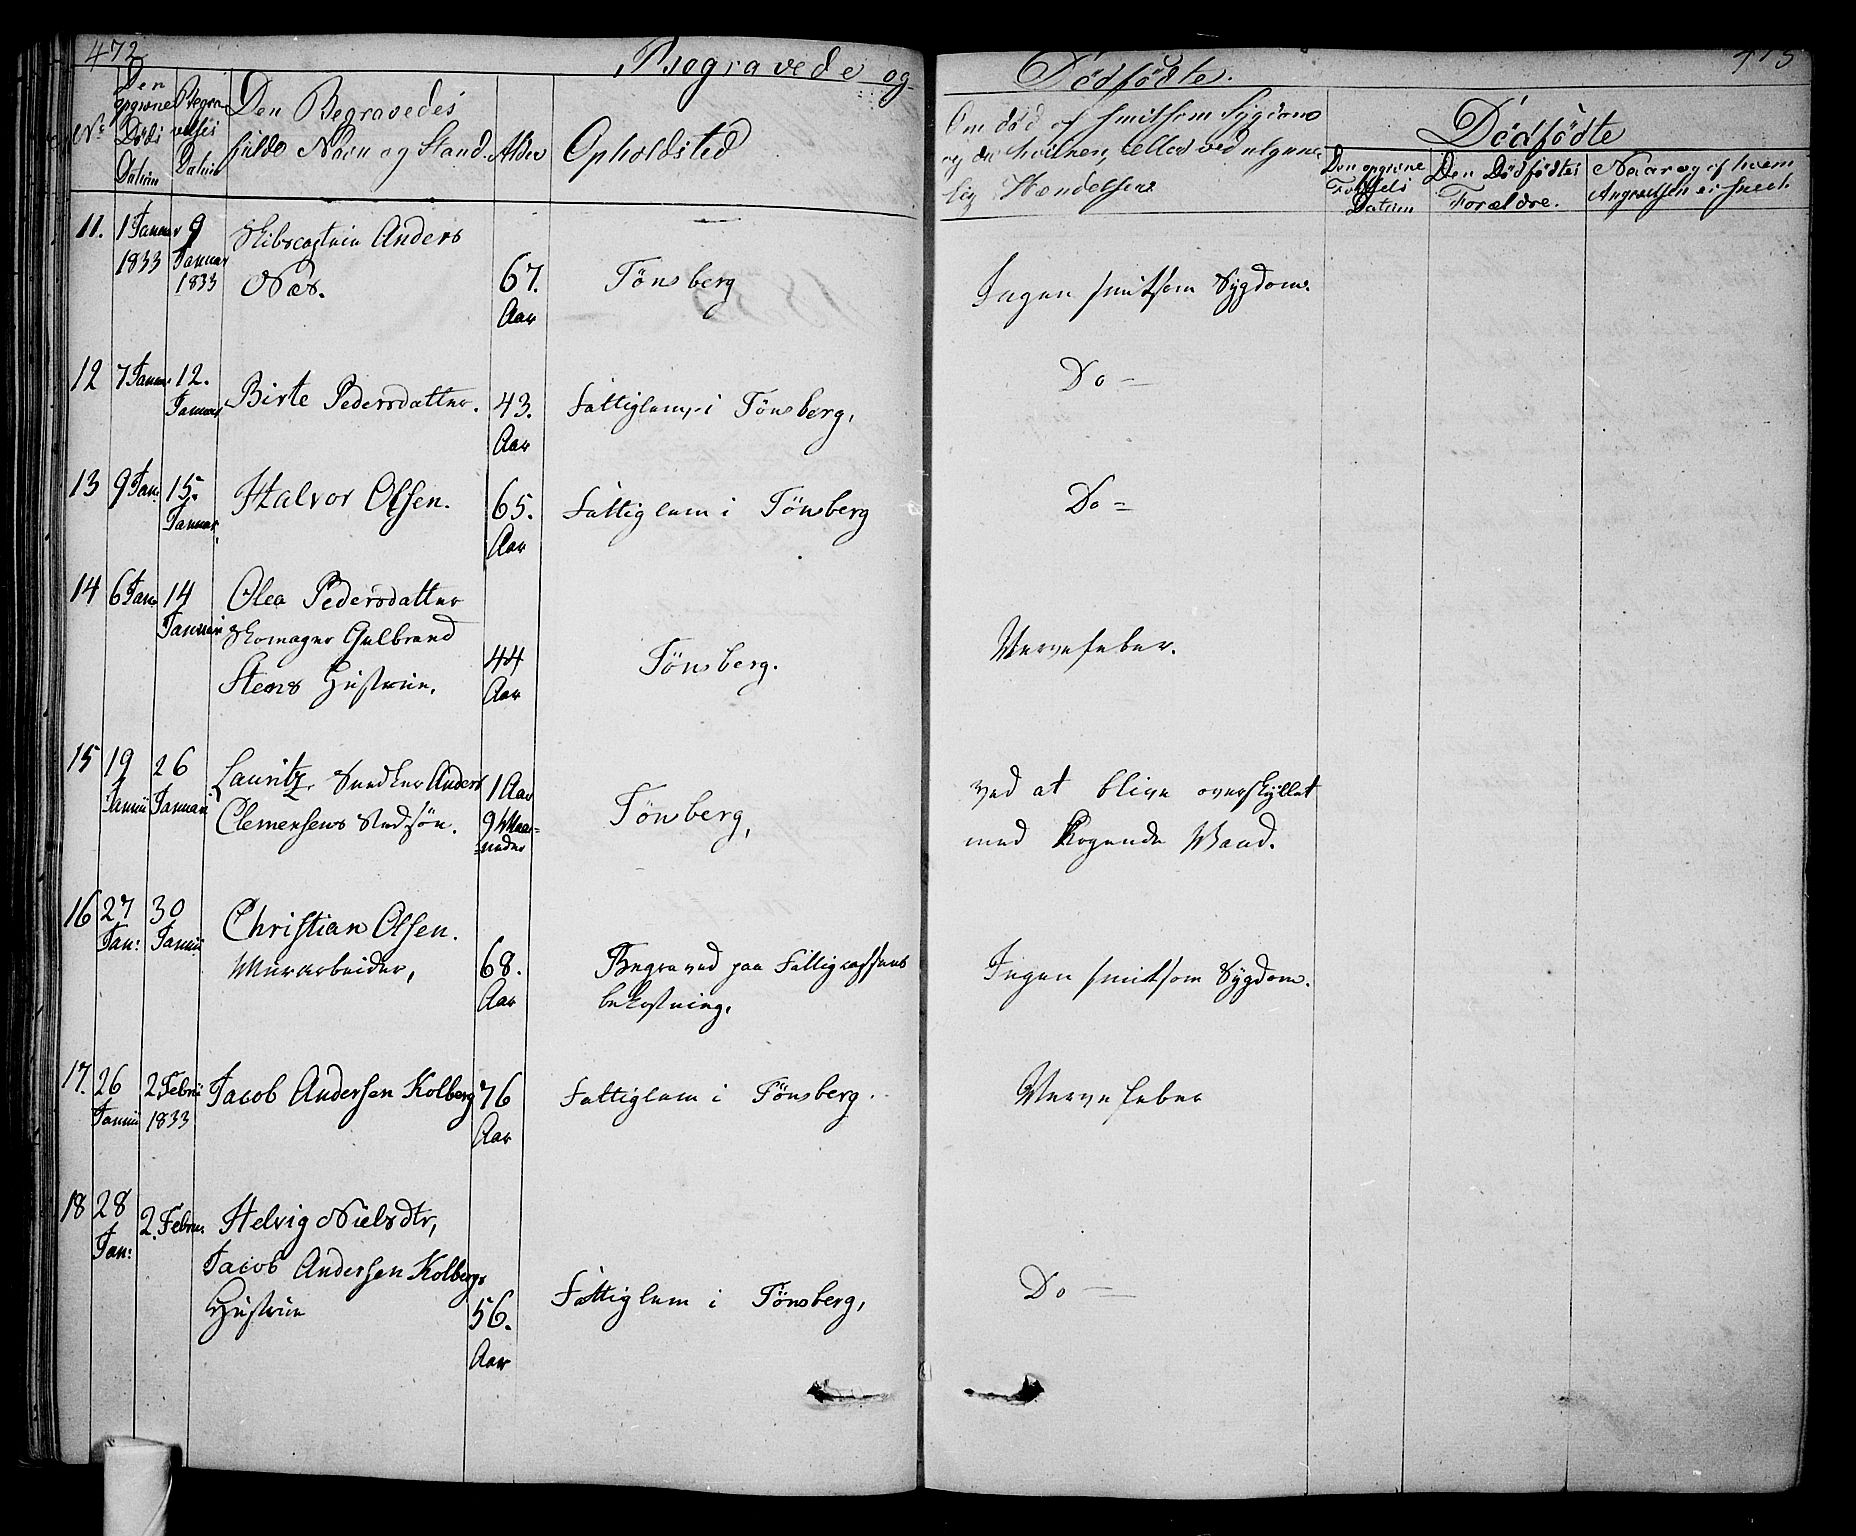 472
Begravede og
Dödfödte.
473
Nr.
Den
opgivne
Döds
Datum
Begra
velses
Datum
Den Begravedes
fulde Navn og Stand.
Alder
Opholdsted
Om död af smitsom Sygdom
og da hvilken, eller ved ulykke
lig Hændelse
Dödfödte
Den opgivne
Födsels
Datum
Den Dödfödtes
Forældre.
Naar og af hvem
Angivelsen er skeet.
11. 1 Januar 9 Skibscaptein Anders
1833 Januar 1833 Næs. 67. Aar Tönsberg Ingen smitsom Sygdom.
12 7 Januar 12. Januar Birte Pedersdatter. 43. Aar Fattiglem i Tönsberg, Do —
13 9 Jan: 15. Januar, Halvor Olsen. 65. Aar Fattiglem i Tönsberg Do =
14 6 Janu 14 Januar Olea Pedersdatter
Skomager Gulbrand
Stens Hustrue, 44 Aar Tönsberg. Nervefeber.
15 19 Januii 26 Januari Lauritz, Snedker Anders
Clemensens Stedsön. 1 Aar 9 Maa=neder Tönsberg, ved at blive overskyllet
med kogende Vand.
16 27 Jan: 30 Januii Christian Olsen.
Murarbeider, 68. Aar Begraved paa Fattigcassens
bekostning, Ingen smitsom Sygdom.
17. 26 Januii 2 Febrii 1833 Jacob Andersen Kolberg 76 Aar Fattiglem i Tönsberg. Nervefeber
18 28 Jan: 2. Febru. Helvig Nielsdtr,
Jacob Andersen Kolbergs
Hustrue 56. Aar Fattiglem i Tönsberg, Do —